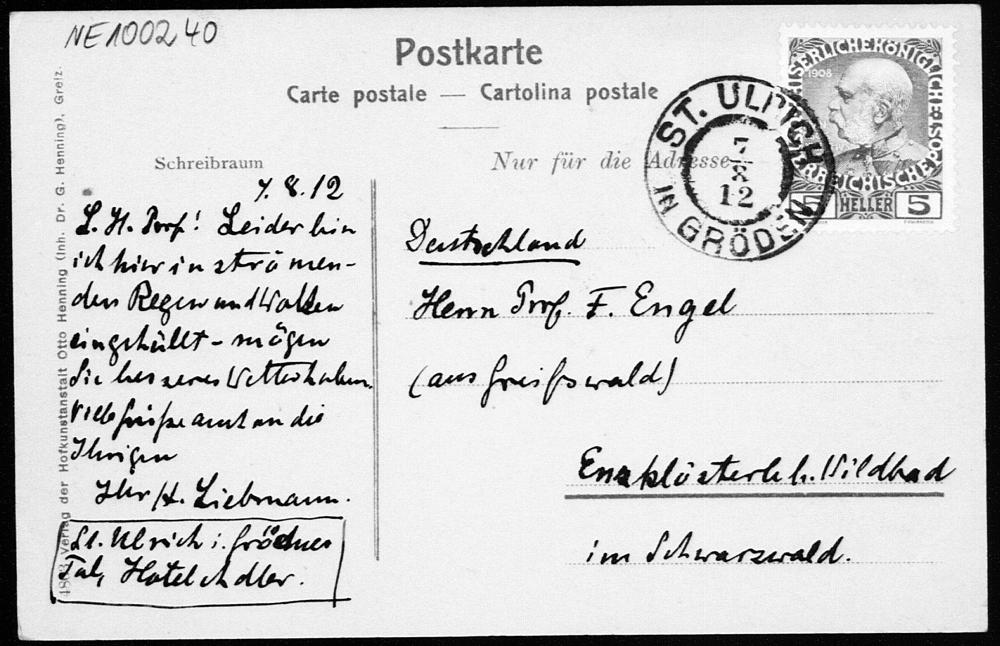 NE100240
Postkarte
Carte postale — Cartolina postale
Schreibraum
Nur für die Adresse
ST. ULRICH
IN GRÖDEN
7
8
12
KAISERLICHEKÖNIGLICHE
ÖSTERREICHISCHEPOST
1908
5 HELLER 5
7.8.12
L. H. Prof! Leider bin
ich hier in strömen-
den Regen und Wolken
eingehüllt – mögen
Sie besseres Wetter haben.
Viele Grüße auch an die
Ihrigen
Ihr H. Liebmann.
St. Ulrich i. Grödner
Tal, Hotel Adler.
Deutschland
Herrn Prof. F. Engel
(aus Greifswald)
Enzklösterle b. Wildbad
im Schwarzwald.
4863 Verlag der Hofkunstanstalt Otto Henning (Inh. Dr. G. Henning), Greiz.